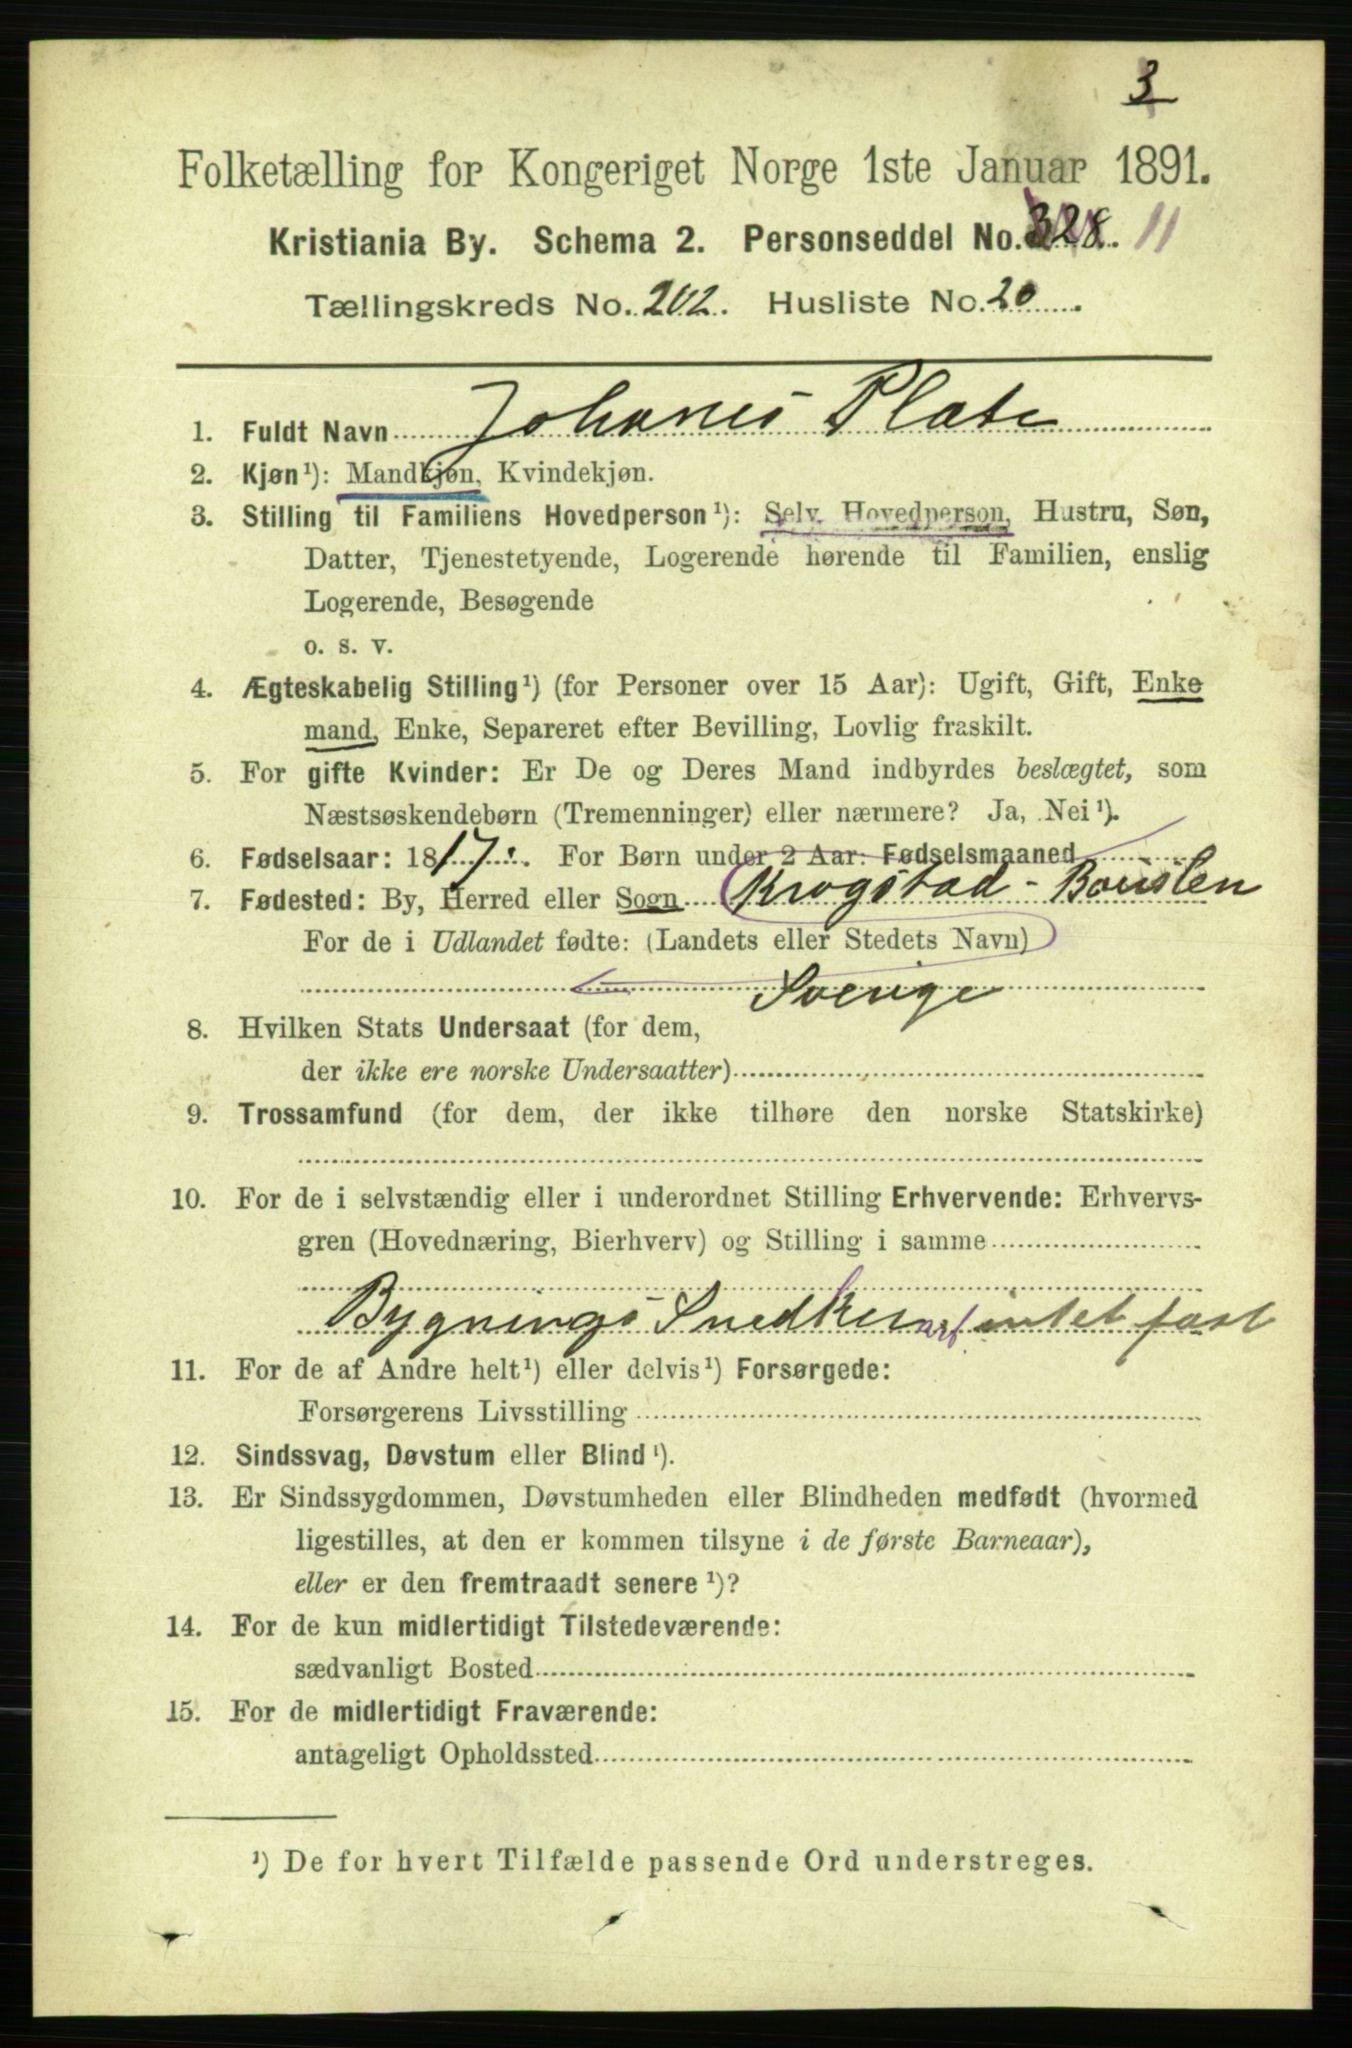 3
Folketælling for Kongeriget Norge 1ste Januar 1891.
Kristiania By. Schema 2. Personseddel No. 328. 11
Tællingskreds No. 202. Husliste No. 20
1. Fuldt Navn Johanes Plate
2. Kjøn¹): Mandkjøn, Kvindekjøn.
3. Stilling til Familiens Hovedperson¹): Selv Hovedperson, Hustru, Søn,
Datter, Tjenestetyende, Logerende hørende til Familien, enslig
Logerende, Besøgende
o. s. v.
4. Ægteskabelig Stilling¹) (for Personer over 15 Aar): Ugift, Gift, Enke
mand, Enke, Separeret efter Bevilling, Lovlig fraskilt.
5. For gifte Kvinder: Er De og Deres Mand indbyrdes beslægtet, som
Næstsøskendebørn (Tremenninger) eller nærmere? Ja, Nei¹).
6. Fødselsaar: 1817. For Børn under 2 Aar: Fødselsmaaned
7. Fødested: By, Herred eller Sogn Krogstad -
For de i Udlandet fødte: (Landets eller Stedets Navn)
Sverige
8. Hvilken Stats Undersaat (for dem,
der ikke ere norske Undersaatter)
9. Trossamfund (for dem, der ikke tilhøre den norske Statskirke)
10. For de i selvstændig eller i underordnet Stilling Erhvervende: Erhvervs-
gren (Hovednæring, Bierhverv) og Stilling i samme
Bygnings Snedker intet fast
11. For de af Andre helt¹) eller delvis¹) Forsørgede:
Forsørgerens Livsstilling
12. Sindssvag, Døvstum eller Blind¹).
13. Er Sindssygdommen, Døvstumheden eller Blindheden medfødt (hvormed
ligestilles, at den er kommen tilsyne i de første Barneaar),
eller er den fremtraadt senere¹)?
14. For de kun midlertidigt Tilstedeværende:
sædvanligt Bosted
15. For de midlertidigt Fraværende:
antageligt Opholdssted
¹) De for hvert Tilfælde passende Ord understreges.